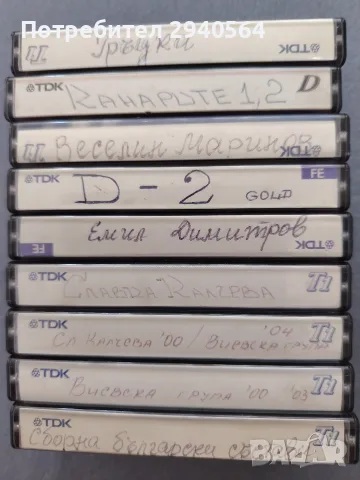 Потребител 2940564
Гръцки
TDK
TDK
Канарите 1,2 D
Веселин Маринов
TDK
TDK
D-2 GOLD
FE
Емил Димитров
FE
TDK
TDK
Славка Калчева
T1
TDK
Сл. Калчева '00 / Виевска група '04
T1
TDK
Виевска група '00 '03
T1
TDK
Сборна български
T1
bazar